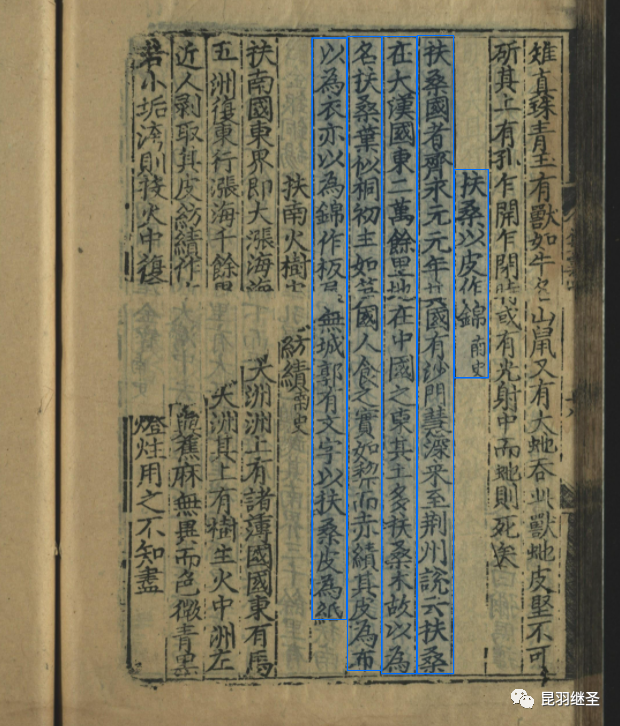 雉真珠青玉有獸如牛名山鼠又有大虵吞此獸虵皮堅不可
斫其上有孔乍開乍閉時或有光射中而虵則死矣
扶桑以皮作錦 南史
扶桑國者齊永元元年其國有沙門慧深来至荆州說云扶桑
在大漢國東二萬餘里地在中國之東其土多扶桑木故以為
名扶桑葉似桐初生如國人食之實如而赤績其皮為布
以為衣亦以為錦作板無城郭有文字以扶桑皮為紙
扶南火樹紡績 南史
扶南國東界即大漲海海大洲洲上有諸薄國國東有馬
五洲復東行漲海千餘里大洲其上有樹生火中洲左
近人剥取其皮紡績作與蕉麻無異而色微青黑
若小垢洿則投火中復燈炷用之不知盡
昆羽继圣